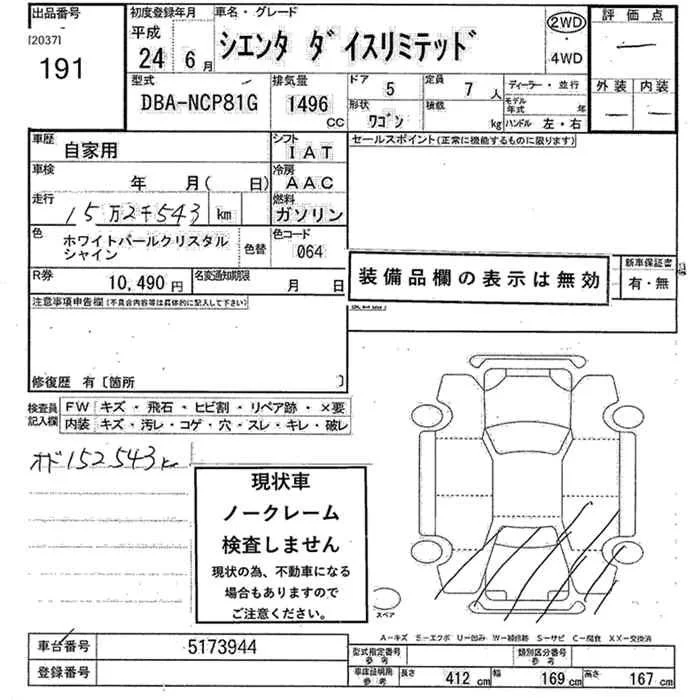 出品番号
[2037]
191
初度登録年月
平成
24 6月
車名・グレード
シエンタ ダイスリミテッド
2WD
・
4WD
評価点
—
外装 内装
— —
型式
DBA-NCP81G
排気量
1496
CC
ドア 5
形状 ワゴン
定員 7 人
積載 kg
ディーラー・並行
モデル年式 年
ハンドル 左・右
車歴 自家用
シフト IAT
セールスポイント(正常に機能するものに限ります)
車検 年 月( 日)
冷房 AAC
走行 15万2千543 km
燃料 ガソリン
色 ホワイトパールクリスタルシャイン
色替
色コード 064
R券 10,490 円
名変通知期限 月 日
装備品欄の表示は無効
新車保証書
有・無
注意事項申告欄(不具合内容等は具体的に記入して下さい)
修復歴 有〔箇所 〕
検査員記入欄
FW キズ・飛石・ヒビ割・リペア跡・×要
内装 キズ・汚レ・コゲ・穴・スレ・キレ・破レ
オド152543km
現状車
ノークレーム
検査しません
現状の為、不動車になる
場合もありますので
ご注意ください。
スペア
A−キズ E−エクボ U−凹み W−補修跡 S−サビ C−腐食 XX−交換済
車台番号 5173944
登録番号
型式指定番号
参考
類別区分番号
参考
車庫証明用
参考
長さ 412 cm 幅 169 cm 高さ 167 cm